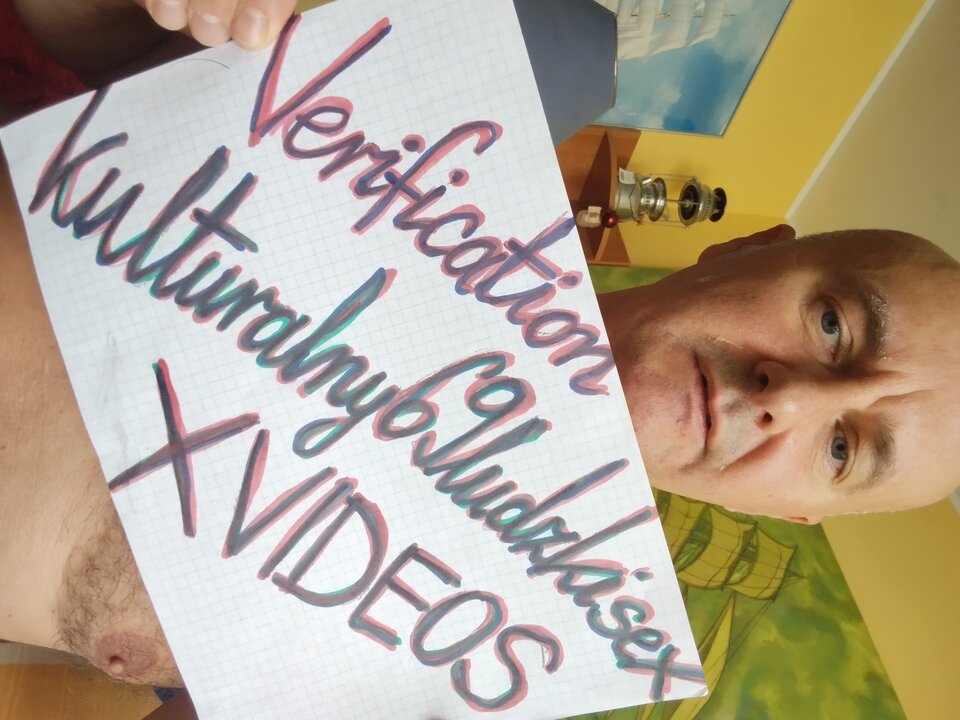 Verification
kulturalny69ludzkisex
XVIDEOS